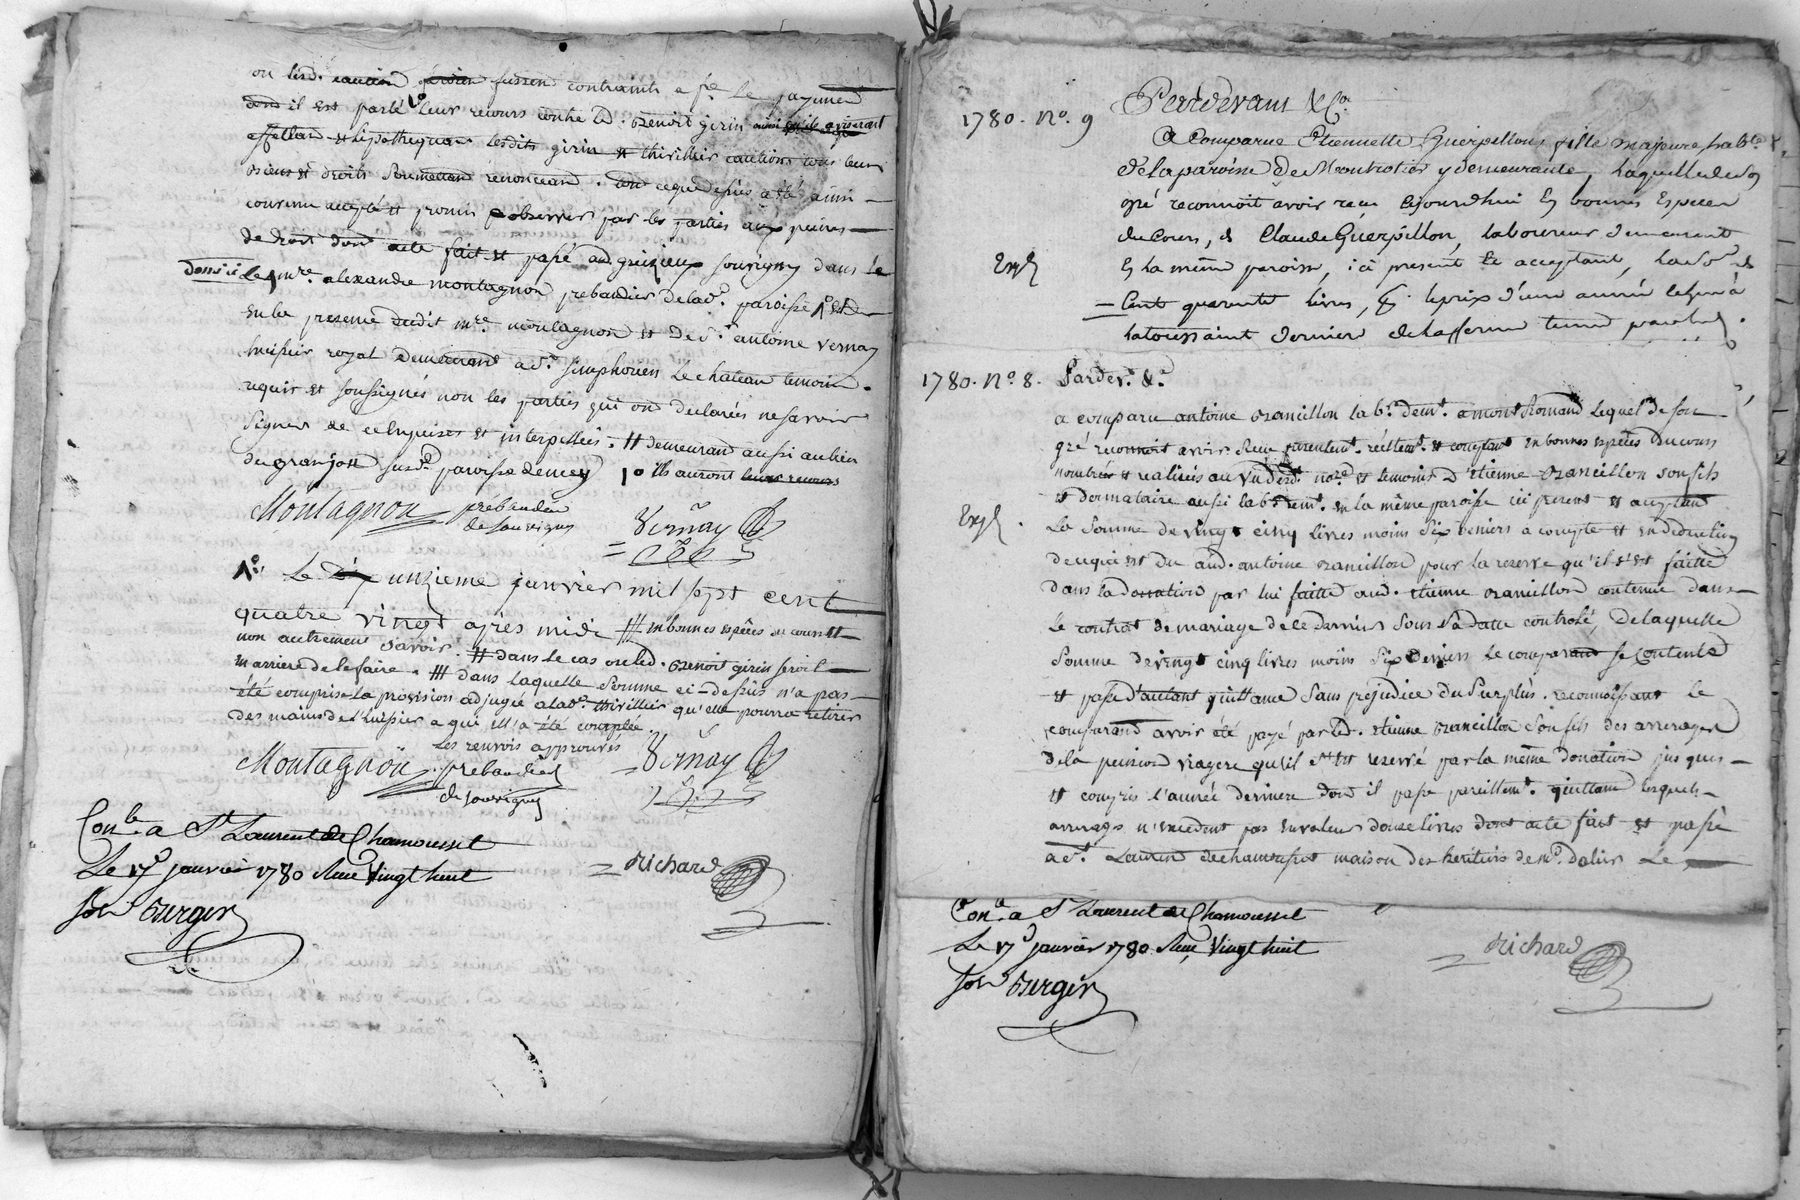 ou lesd. caution fussent contraints a fe. le payment
dont il est parlé leur recours contre led. Benoit girin
affectant et hipothequant lesdits girin et thivillier cautions tous leurs
biens et droits Soumettant renonceant. tout ce que dessus a été ainsi
convenu accepté et promis observer par les parties aux peines
de droit dont acte fait et passé aud grezieux Souvigny dans le
domicile mre. alexandre montagnon prebandier de lad. paroisse
en la presence dudit mre. montagnon et de Sr. antoine vernay
huissier royal demeurant a St. Simphorien le chateau temoins
requis et Soussignés non les parties qui ont declarées ne savoir
signer de ce enquises et interpellées. # demeurant aussi au lieu
du granjon susd. paroisse 1o ils auront
Montagnon prébendier
de Souvigny
Vernay
Le unzieme janvier mil sept cent
quatre vingt apres midi ## en bonnes espêces du cours et
non autrement savoir. # dans le cas ou led. Benoit girin seroit
en arriere de le faire. ## dans laquelle Somme ci-dessus n'a pas
été comprise la provision adjugée a lad. thivillier qu'elle pourra retirer
des mains de l'huissier a qui ell'a été comptée
les renvois approuvés
Montagnon prebandier
de Souvigny
Vernay
Conle. a St Laurent de Chamousset
Le 17e janvier 1780 Reçu Vingt huit
Richard
1780. No. 9 Pardevant &ca.
A Comparue Etiennette Guerpillon fille majeure habte.
de la paroisse de Montrotier y demeurante, laquelle de son
gré reconnoit avoir reçu cejourdhui En bonnes Especes
du Cours, de Claude Guerpillon, laboureur demeurant
En la même paroisse, ici present et acceptant, la so. de
Cent quarente livres, pr. le prix d'une année échue à
la toussaint dernier de la ferme
Expé
1780. No. 8. Pardevt. &a.
a comparu antoine Brancillon labr. demt. a mont Romand lequel de son
gré reconnoit avoir Reçu presentemt. réellemt. et comptant en bonnes espêces du cours
nombrées et realisées au vu desd. nore. et temoins d'etienne Brancillon son fils
et donnataire aussi labr. demt. en la même paroisse ici present et acceptant
Expé.
La Somme de vingt cinq livres moins Six deniers a compte et en déduction
de ce qui est du aud. antoine Brancillon pour la reserve qu'il s'est faitte
dans la donnation par lui faitte aud. etienne Brancillon contenue dans
le contrat de mariage de ce dernier Sous Sa datte controlé, de laquelle
Somme de vingt cinq livres moins Six deniers le comparant se contente
et passe d'autant quittance Sans prejudice du Surplus. reconnoissant le
comparant avoir été payé par led. etienne Brancillon Son fils des arrerages
de la pension viagere qu'il s'est reservé par la même donation jusques
et compris l'année derniere dont il passe pareillemt. quittance lesquels
arrerages n'excedent pas en valeur douze livres dont acte fait et passé
a St. Laurent de chamousset maison des heritiers de mr. dalier Le
Conle. a St Laurent de Chamousset
Le 17e janvier 1780 Reçu Vingt huit
Richard